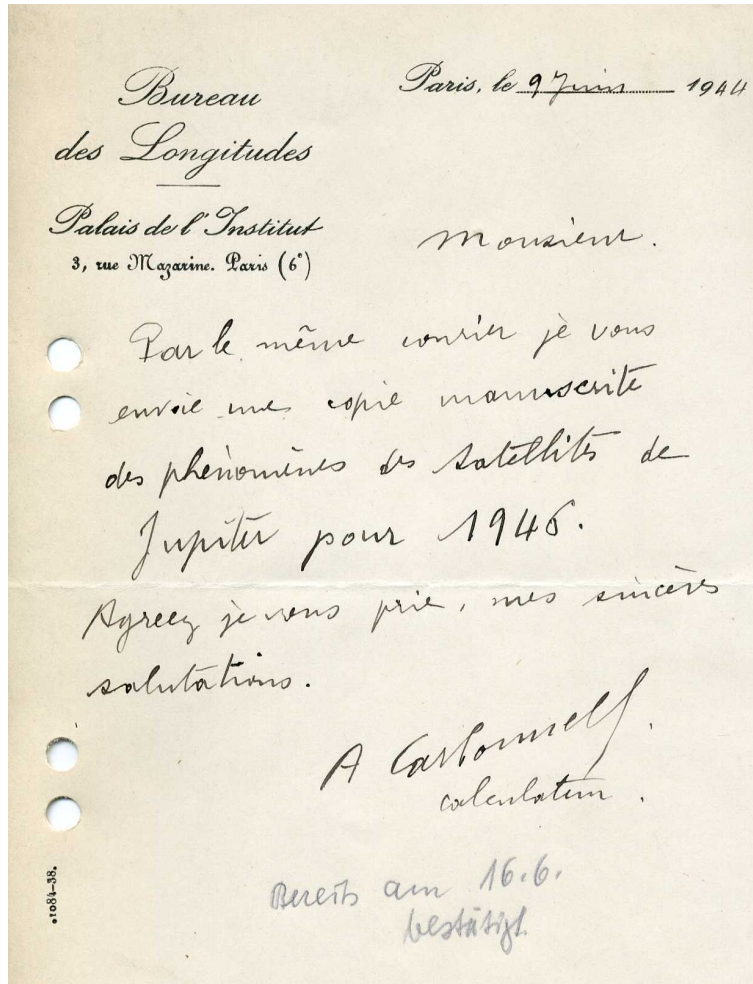 Bureau
des Longitudes
Palais de l'Institut
3, rue Mazarine. Paris (6e)
Paris, le 9 Juin 1944
Monsieur.
Par le même courier je vous
envoie une copie manuscrite
des phénomènes des satellites de
Jupiter pour 1946.
Agreez je vous prie, mes sincères
salutations.
A Carbonnell.
calculateur.
Bereits am 16.6.
bestätigt.
•1084-38.